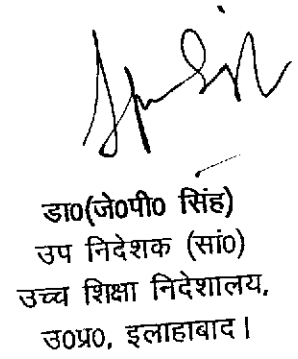 डा0(जे0पी0 सिंह)
उप निदेशक (सां0)
उच्च शिक्षा निदेशालय,
उ0प्र0, इलाहाबाद।